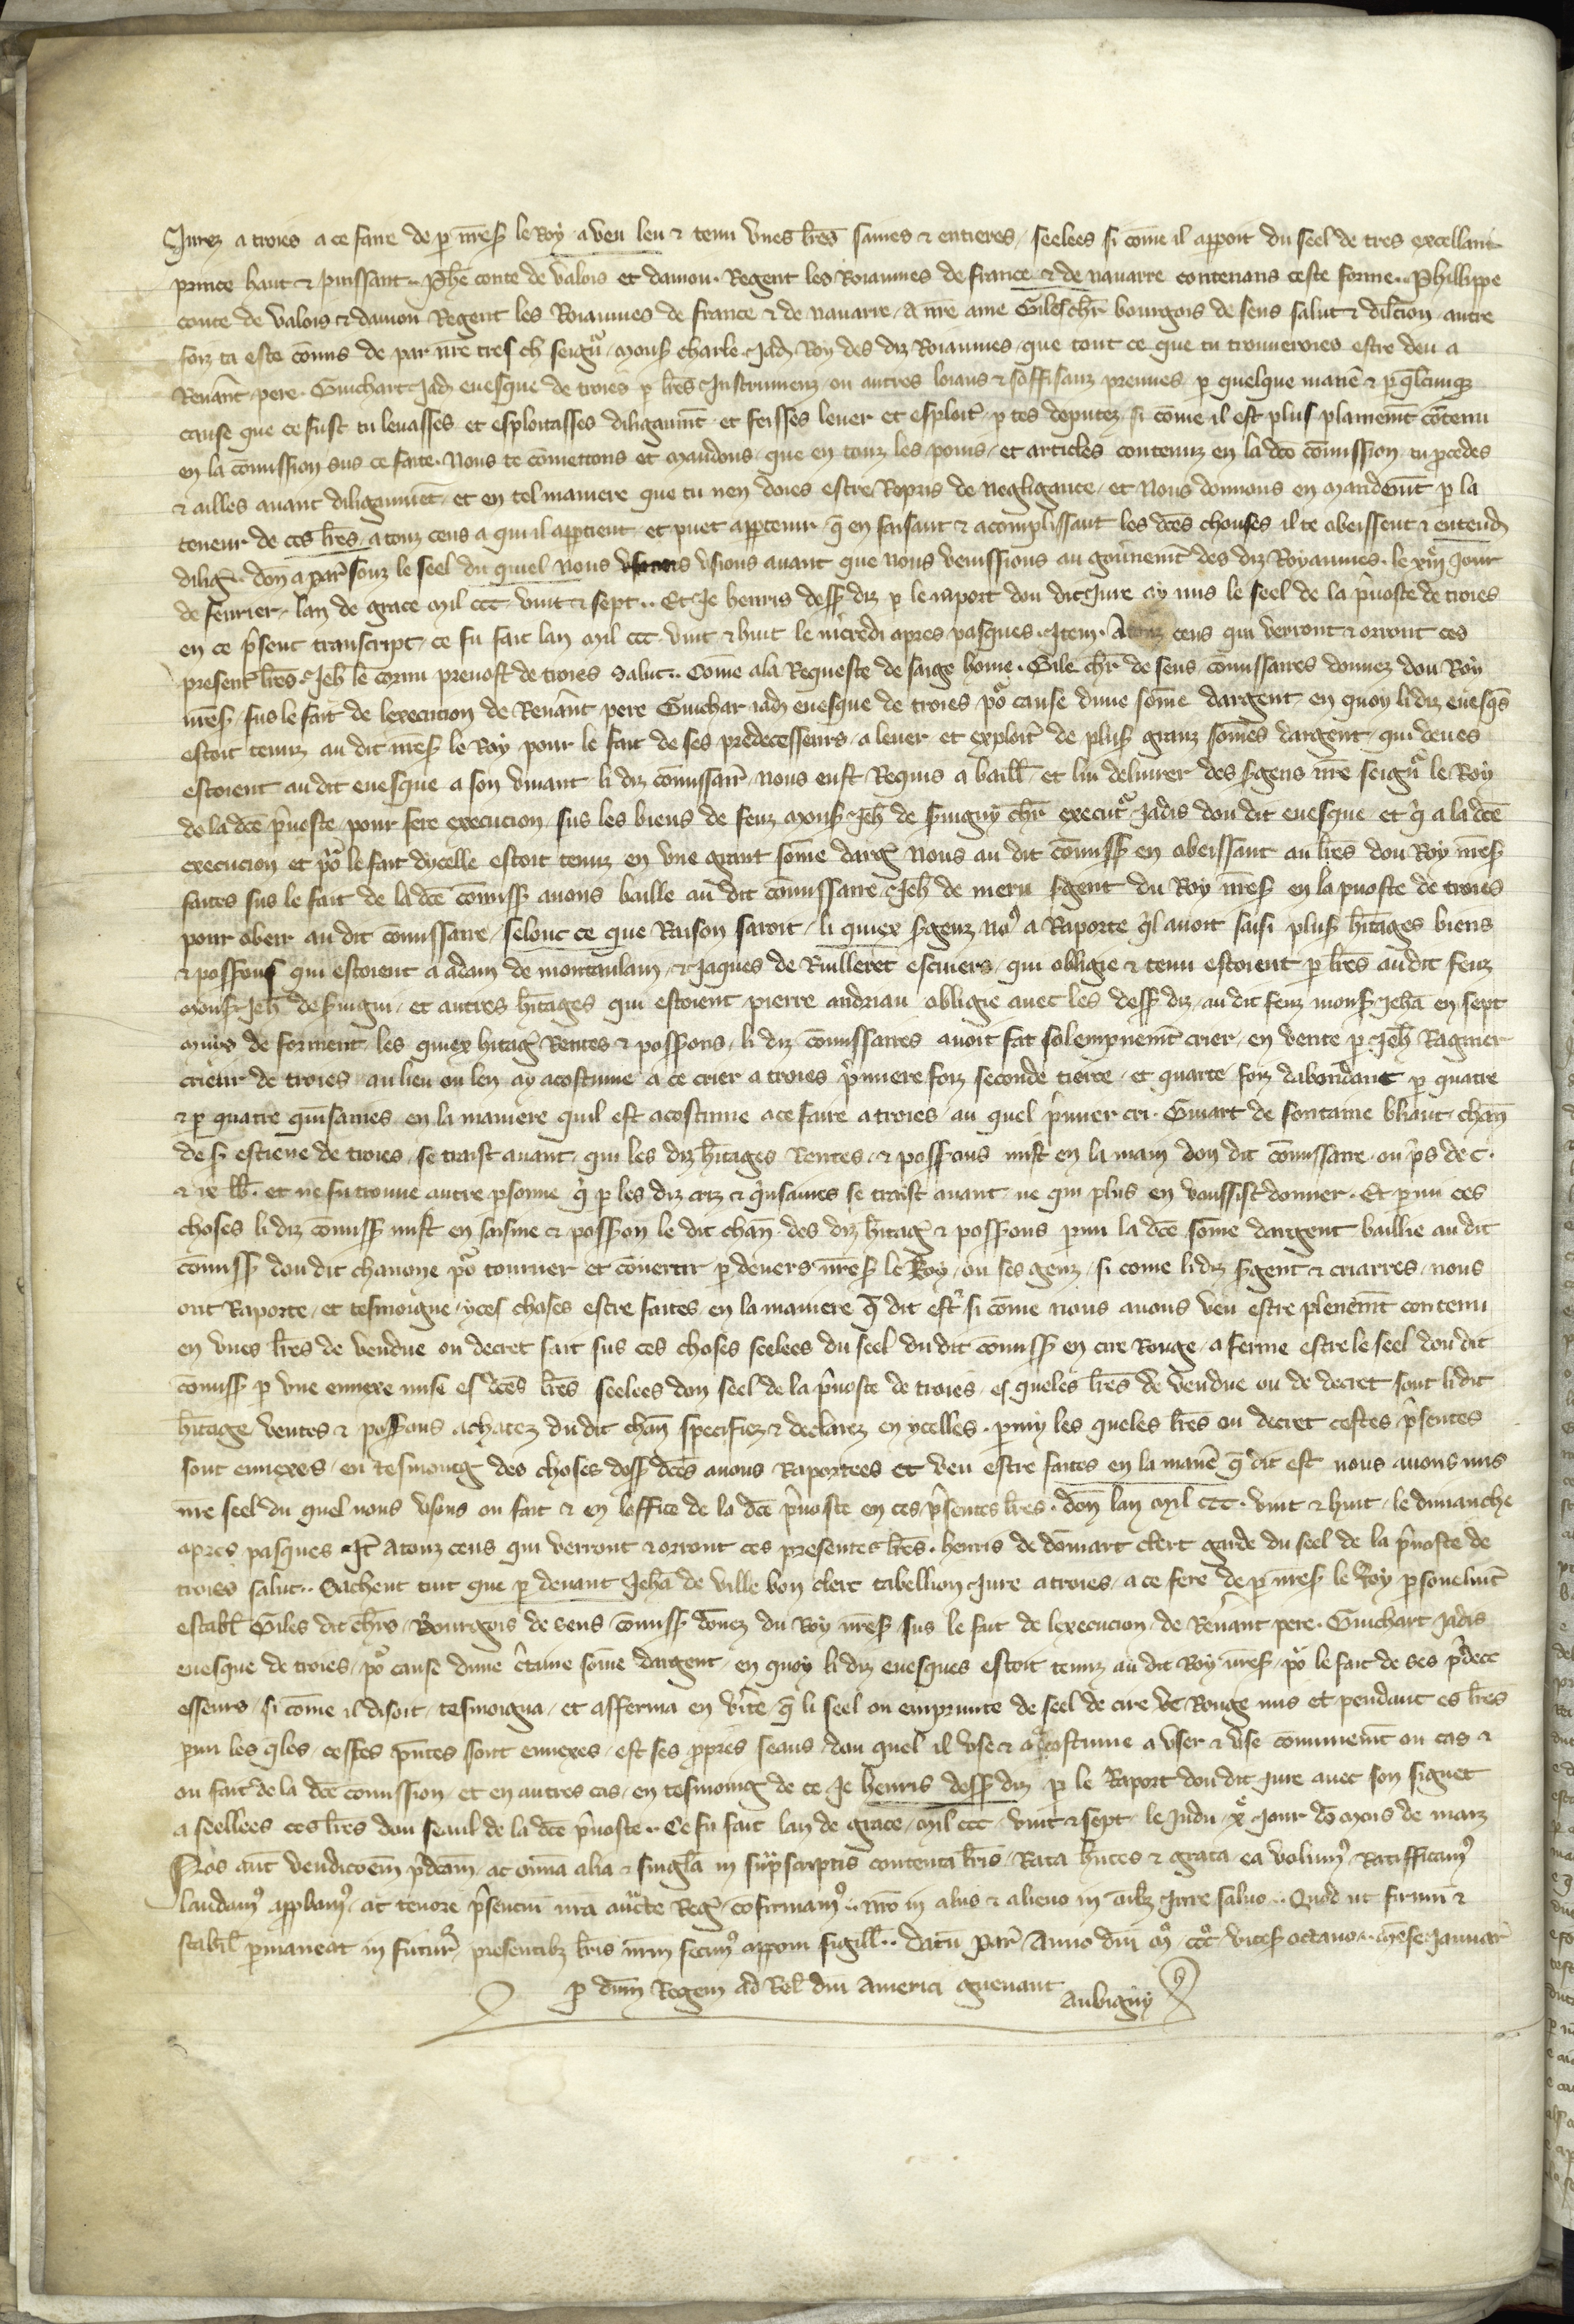 Jurez a troies a ce faire de p nres le Roy a veu leu & tenu unes lres saines & entieres seelees si come il apport du seel de tres excellant
prince haut & puissant Phe conte de valois et daniou Regent les Roiaumes de france & de navarre contenans ceste forme Phillippe
conte de valois & daniou Regent les Roiaumes de france & de navarre A nre ame Giles chr bourgois de sens salut & dilcion autre
foiz ta este comis de par nre tres ch seigur mons charle jad Roy des diz Roiaumes que tout ce que tu trouveroies estre deu a
Revant pere Guichart jad evesque de troies p lres Instrumenz ou autres loiaus & soffisanz preuves p quelque manie & p qlcunq
cause que ce fust tu levasses et esploitasses diligaumt et feisses lever et esploit p tes deputez si come il est plus plainemt contenu
en la comission sus ce faite Nous te comettons et mandons que en touz les poins et articles contenuz en la dce comission tu pcedes
& ailles avant diligaumet et en tel maniere que tu nen doies estre Repris de negligance et Nous donnons en mandemt p la
teneur de ces lres a touz ceus a qui il apptient et puet apptenir q en faisant & acomplissant les dces chouses il te obeissent & entend
dilig don a par souz le seel du quel nous usions avant que nous venissions au gouvnemt des diz Royaumes le xiiij jour
de fevrier lan de grace mil ccc vint & sept Et Je henris dess diz p le raport dou dit Jure ay mis le seel de la pvoste de troies
en ce psent transcript ce fu fait lan mil ccc vint & huit le mcredi apres pasques Item A touz ceus qui verront & orront ces
present lres Jeh le cornu prevost de troies Salut Come a la Requeste de saige home Gile chr de sens comissaires donnez dou Roy
nres sus le fait de lexecucion de Revant pere Guichar jad evesque de troies po cause dune some dargent en quoy li diz evesqs
estoit tenuz au dit nres le Roy pour le fait de ses predecesseurs a lever et exploit de plus granz somes dargent qui deues
estoient au dit evesque a son vivant li diz comissair nous eust Requis a baill et lui delivrer des sgens nre seigur le Roy
de la dce pvoste pour fere execucion sus les biens de feuz mons Jeh de chr executr jadis dou dit evesque et q a la dce
execucion et po le fait dycelle estoit tenuz en une grant some darg Nous au dit comiss en obeissant au lres dou Roy nres
faites sus le fait de la dce comiss avons baille au dit comissaire Jeh de meru sgent du Roy nres en la pvoste de troies
pour obeir au dit comissaire selonc ce que Raison saroit li quiex sgenz no a Raporte ql avoit saisi plus hitages biens
& possons qui estoient a adam de montaulain & Jaques de escuiers qui obligie & tenu estoient p lres au dit feuz
mons Jeh de et autres hitages qui estoient pierre andriau obligie avec les dess diz au dit feuz mons Jeha en sept
muis de forment les quiex hitag Rentes & possons li diz comissaires avoit fat solempnemt crier en vente p Jeh Ragnier
crieur de troies au lieu ou len ay acostume a ce crier a troies pmiere foiz seconde tierce et quarte foiz dabondant p quatre
& p quatre quisaines en la maniere quil est acostume a ce faire a troies au quel pmier cri Guiart de fontaine chan
de s estiene de troies se traist avant qui les diz hitages Rentes & possons mist en la main dou dit comissaire ou ps de c
& lb et ne fu trouve autre psonne q p les diz criz & qnsaines se traist avant ne qui plus en vaussist donner Et pmi ces
choses li diz comiss mist en saisine & posson le dit chan des diz hitag & possons pmi la dce some dargent baillie au dit
comiss dou dit chanoine po tourner et covertir p devers nres le Roy ou ses genz si come li diz sgent & criarres nous
ont Raporte et tesmoigne yces choses estre faites en la maniere q dit est si come nous avons veu estre plenemt contenu
en unes lres de vendue ou decret fait sus ces choses seelees du seel du dit comiss en cire Rouge a ferme estre le seel dou dit
comiss p une ennexe mise es dces lres seelees dou seel de la pvoste de troies es queles lres de vendue ou de decret sont li dit
hitage ventes & possons achatez du dit chan specifiez & declarez en ycelles pmy les queles lres ou decret cestes psentes
sont ennexes en tesmoing des choses dess dces avons Raportees et veu estre faites en la manie q dit est nous avons mis
nre seel du quel nous usons ou fait & en loffice de la dce pvoste en ces psentes lres don lan mil ccc vint & huit le dimanche
apres pasques It A touz ceus qui verront & orront ces presentes lres henris de domart clerc garde du seel de la pvoste de
troies salut Sachent tuit que p devant Jeha de ville bon clerc tabellion Jure a troies a ce fere de p nres le Roy psonelmt
establ Giles dit chrs Bourgois de sens comiss donez du Roy nres sus le fait de lexecucion de Revant pere Guichart jadis
evesque de troies po cause dune ctaine some dargent en quoy li diz evesques estoit tenuz au dit Roy nres po le fait de ses pdece
esseurs si come il disoit tesmoigna et afferma en vite q li seel ou emprunte de seel de cire de Rouge mis et pendant es lres
pmi les qles cestes pntes sont ennexes est ses ppres seaus dou quel il use & a acostume a user & use comunemt ou cas &
ou fait de la dce comission et en autres cas en tesmoing de ce Je henris dess diz p le Raport dou dit jure avec son signet
a seellees ces lres dou seaul de la dce pvoste Ce fu fait lan de grace mil ccc vint & sept le Judi xe jour do mois de marz
Nos aut vendicoem pdcam ac omia alia & singla in suprscriptis contenta lris Rata hntes & grata ea volum Ratifficam
laudam appbam ac tenore psencium nra aucte Reg cofirmam nro in aliis & alieno in oibz jure salvo Quod ut firmu &
stabil pmaneat in futur presentibz lris nrm fecim apponi sigill datu par Anno dni mo ccco vices octavo mense Januar
p dnm Regem ad Rel dni America guenant Aubigny